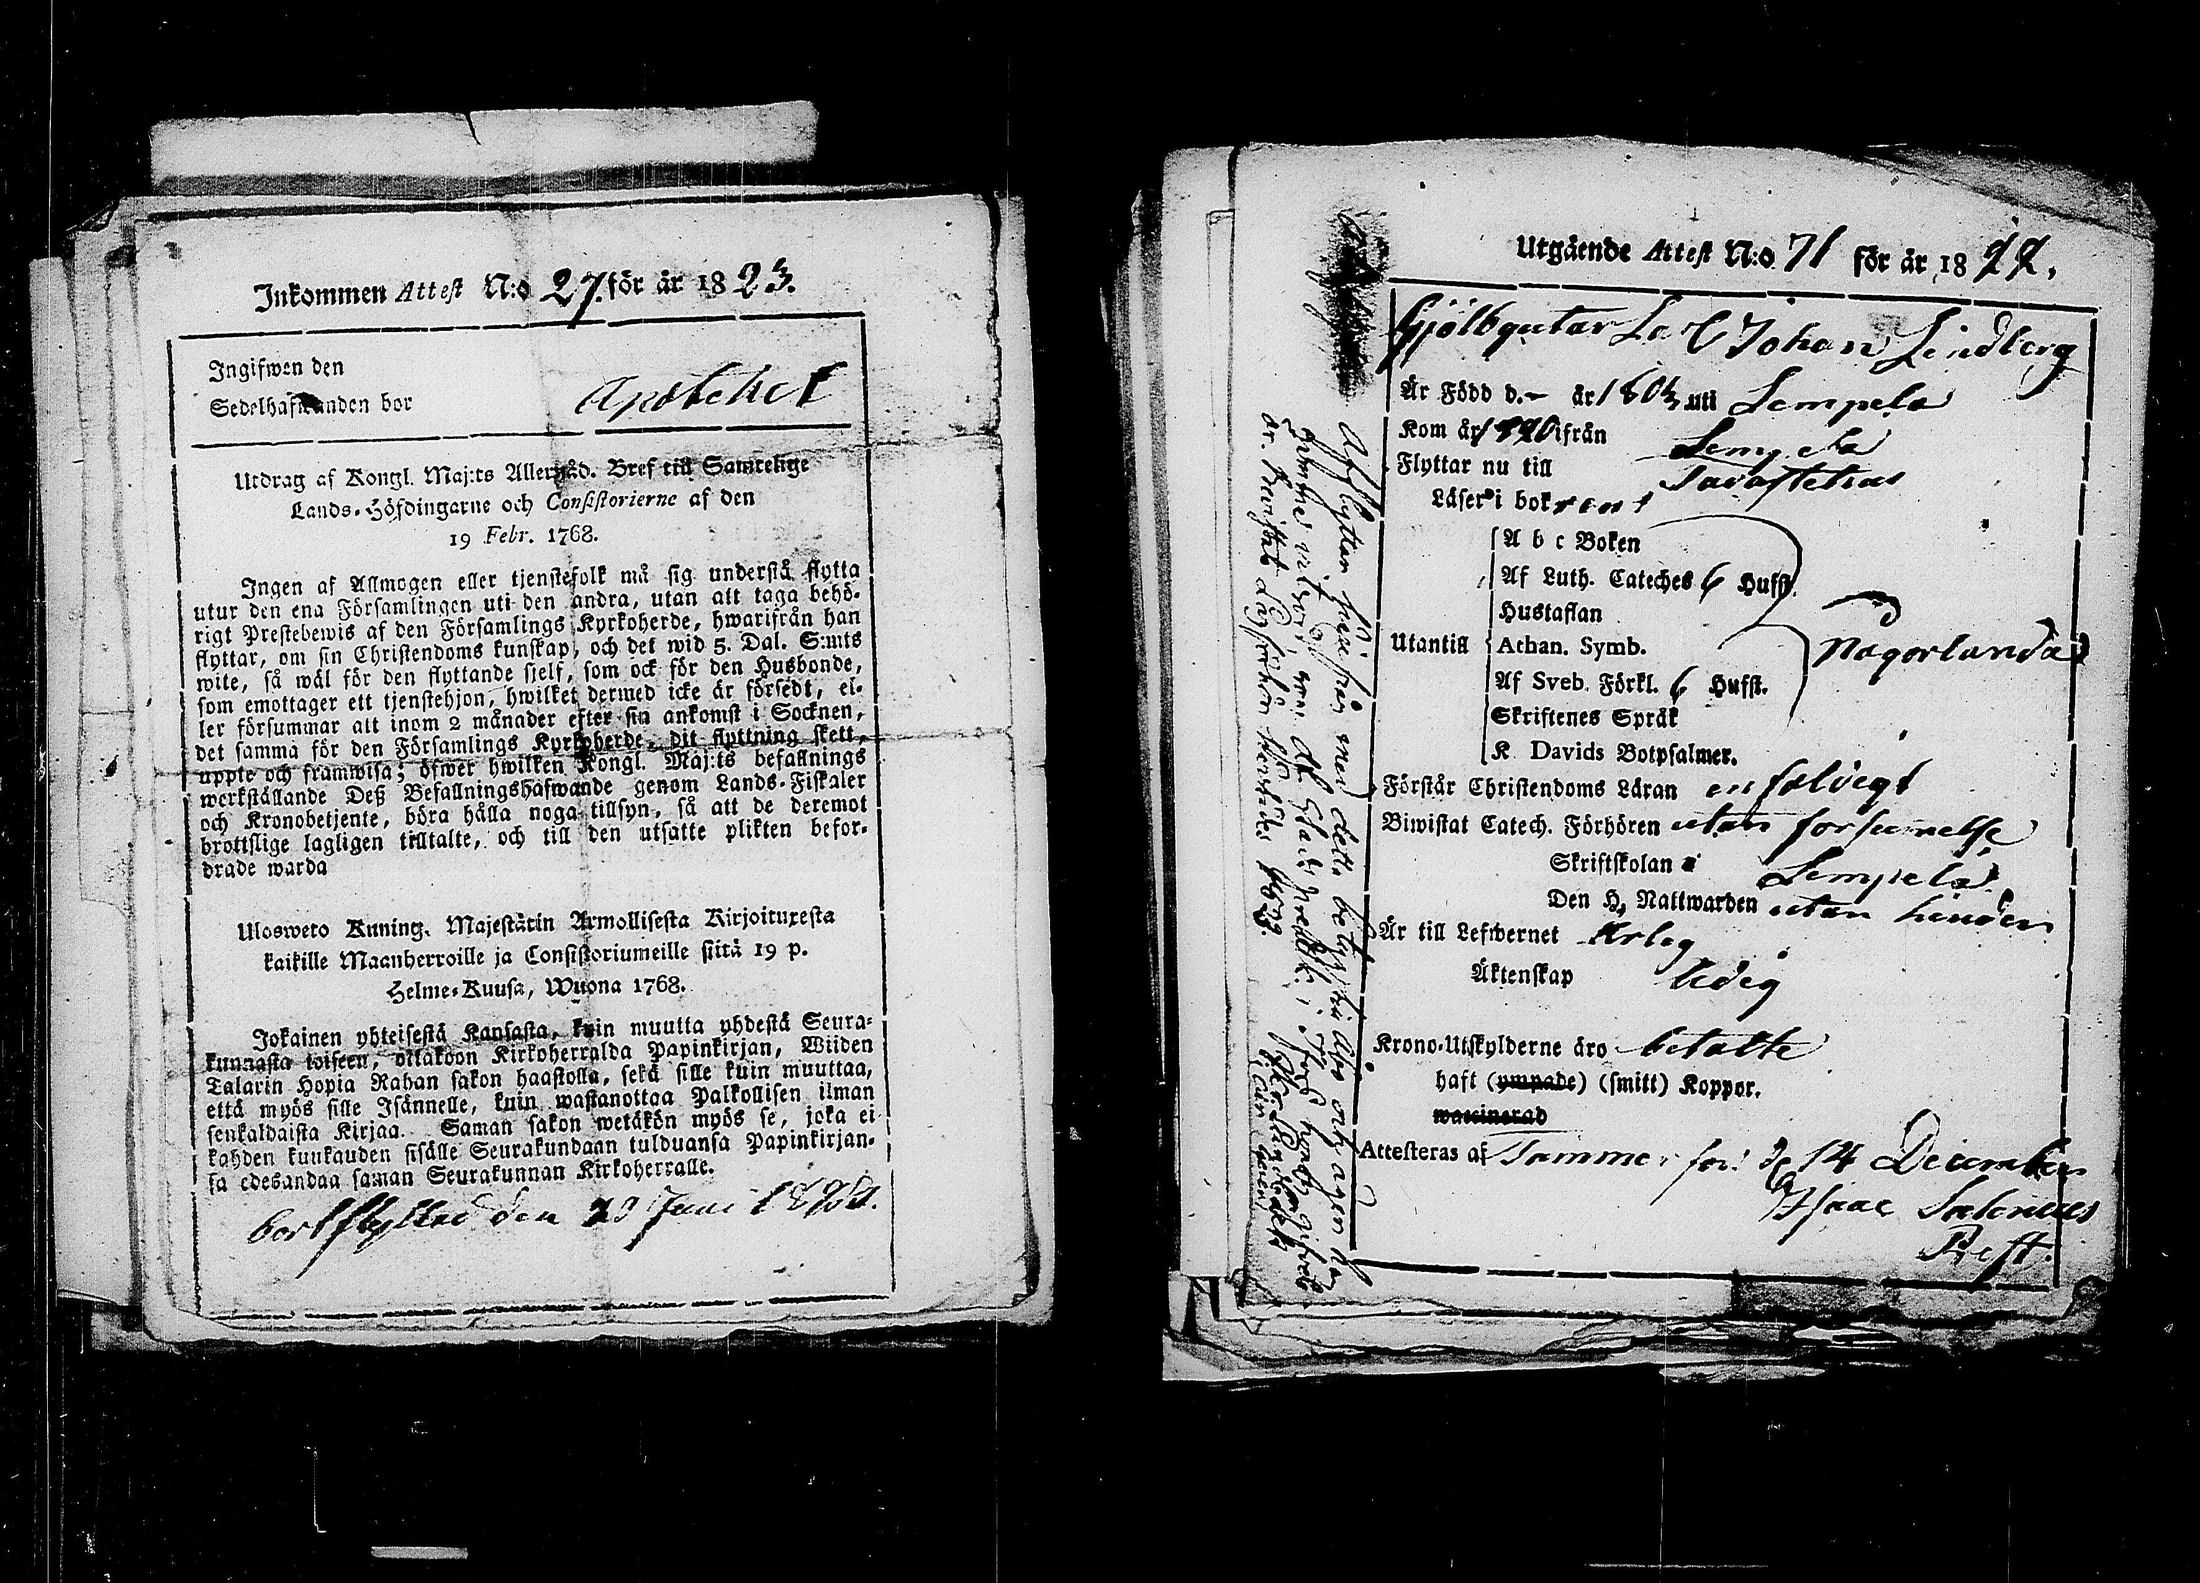 Inkommen Attest N:o 27. för år 1823.
Ingifwen den
Sedelhafwanden bor Apotheket
Utdrag af Kongl. Maj:ts Allernåd. Bref till Samtelige
Lands-Höfdingarne och Consistorierne af den
19 Febr. 1768.
Ingen af Allmogen eller tjenstefolk må sig understå flytta
utur den ena Församlingen uti den andra, utan att taga behö-
rigt Prestebewis af den Församlings Kyrkoherde, hwarifrån han
flyttar, om sin Christendoms kunskap, och det wid 5. Dal. S:mts
wite, så wäl för den flyttande sjelf, som ock för den Husbonde,
som emottager ett tjenstehjon, hwilket dermed icke är försedt, el-
ler försummar att inom 2 månader efter sin ankomst i Socknen,
det samma för den Församlings Kyrkoherde, dit flyttning skett,
uppte och framwisa; öfwer hwilken Kongl. Maj:ts befallnings
werkställande Deß Befallningshafwande genom Lands-Fiskaler
och Kronobetjente, böra hålla noga tillsyn, så att de deremot
brottslige lagligen tilltalte, och till den utsatte plikten befor-
drade warda
Ulosweto Kuning. Majestätin Armollisesta Kirjoituxesta
kaikille Maanherroille ja Consistoriumeille siitä 19 p.
Helme-Kuusa, Wuona 1768.
Jokainen yhteisestä Kansasta, kuin muutta yhdestä Seura-
kunnasta toiseen, ottakoon Kirkoherralda Papinkirjan, Wiiden
Talarin Hopia Rahan sakon haastolla, sekä sille kuin muuttaa,
että myös sille Isännelle, kuin wastanottaa Palkollisen ilman
senkaldaista Kirjaa. Saman sakon wetäkön myös se, joka ei
kahden kuukauden sisälle Seurakundaan tulduansa Papinkirjan-
sa edesandaa saman Seurakunnan Kirkoherralle.
bortflyttad den Juni
Utgående Attest N:o 71 för år 1822.
Gjölbgutar Carl Johan Lindberg
Är Född d. - år 1803 uti Lempela
Kom år 1820 ifrån Lempela
Flyttar nu till Tavastehus
Läser i bok rent
A b c Boken
Af Luth. Cateches 6 Hufst.
Hustaflan
Utantill Athan. Symb. Någorlunda
Af Sveb. Förkl. 6 Hufst.
Skriftenes Språk
K. Davids Botpsalmer.
Förstår Christendoms Läran enfaldigt
Biwistat Catech. Förhören utan försumelse
Skriftskolan i Lempela
Den H. Nattwarden utan hinder
Är till Lefwernet Ärlig
Äktenskap ledig
Krono-Utskylderne äro betalte
haft (ympade) (smitt) Koppor.
waccinerad
Attesteras af Tammerfors d. 14 December
Isaac Salenius
Past.
Afflyttar härifrån med detta betyg till Åbo och ägen